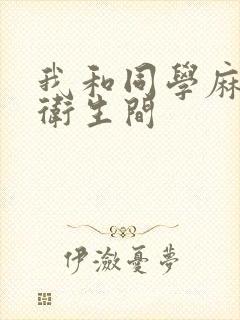 我和同學麻
衛生間
伊瀲憂夢